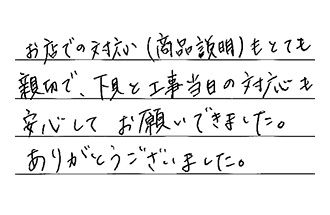 お店での対応(商品説明)もとても
親切で、下見と工事当日の対応も
安心して お願いできました。
ありがとうございました。